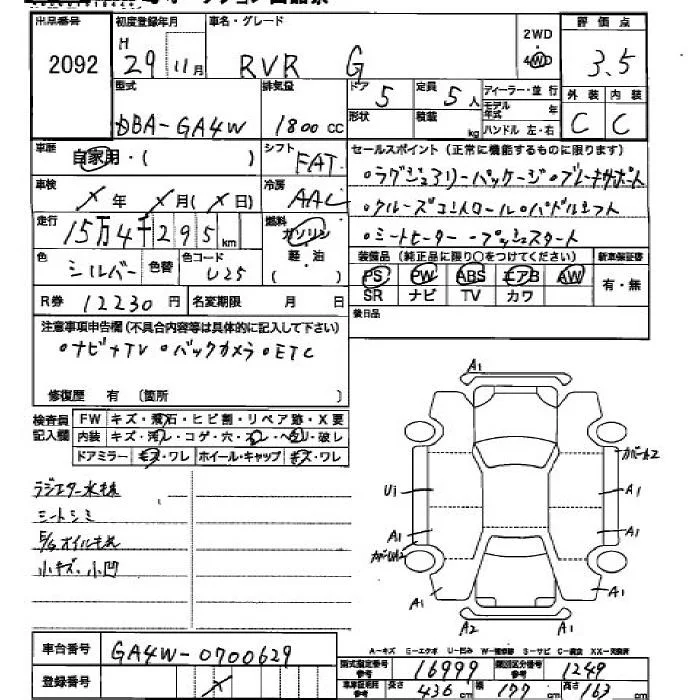 出品番号 初度登録年月 車名・グレード 2WD 評価点
2092 H 29 11月 RVR G 4WD 3.5
型式 排気量 ドア 5 定員 5人 ディーラー・並行 外装 内装
DBA-GA4W 1800cc 形状 積載 kg モデル年式 年 C C
ハンドル 左・右
車歴 自家用・( ) シフト FAT セールスポイント(正常に機能するものに限ります)
車検 X年 X月(X日) 冷房 AAC ・ラグジュアリーパッケージ・ブレーキサポート
・クルーズコントロール・パドルシフト
走行 15万4千295km 燃料 ガソリン ・シートヒーター・プッシュスタート
色 シルバー 色替 色コード U25 軽・油 ( ) 装備品(純正品に限り○をつけてください) 新車保証書
PS PW ABS エアB AW 有・無
SR ナビ TV カワ
R券 12230円 名変期限 月 日 後日品
注意事項申告欄(不具合内容等は具体的に記入して下さい)
・ナビ+TV ・バックカメラ・ETC
修復歴 有 〔箇所 〕
検査員記入欄 FW キズ・飛石・ヒビ割・リペア跡・X要
内装 キズ・汚レ・コゲ・穴・スレ・ヘタリ・破レ
ドアミラー キズ・ワレ ホイール・キャップ キズ・ワレ
A1
ラジエター水モレ
シートシミ
E/Gオイルモレ
小キズ、小凹
U1 A1
A1 A1
A1 A1
A2 A1
A-キズ E-エクボ U-凹み W-補修跡 S-サビ C-腐食 XX-交換済
車台番号 GA4W-0700629
登録番号 X
型式指定番号 参考 16999 類別区分番号 参考 1249
車車証明用 参考 長さ 436cm 幅 177cm 高さ 163cm